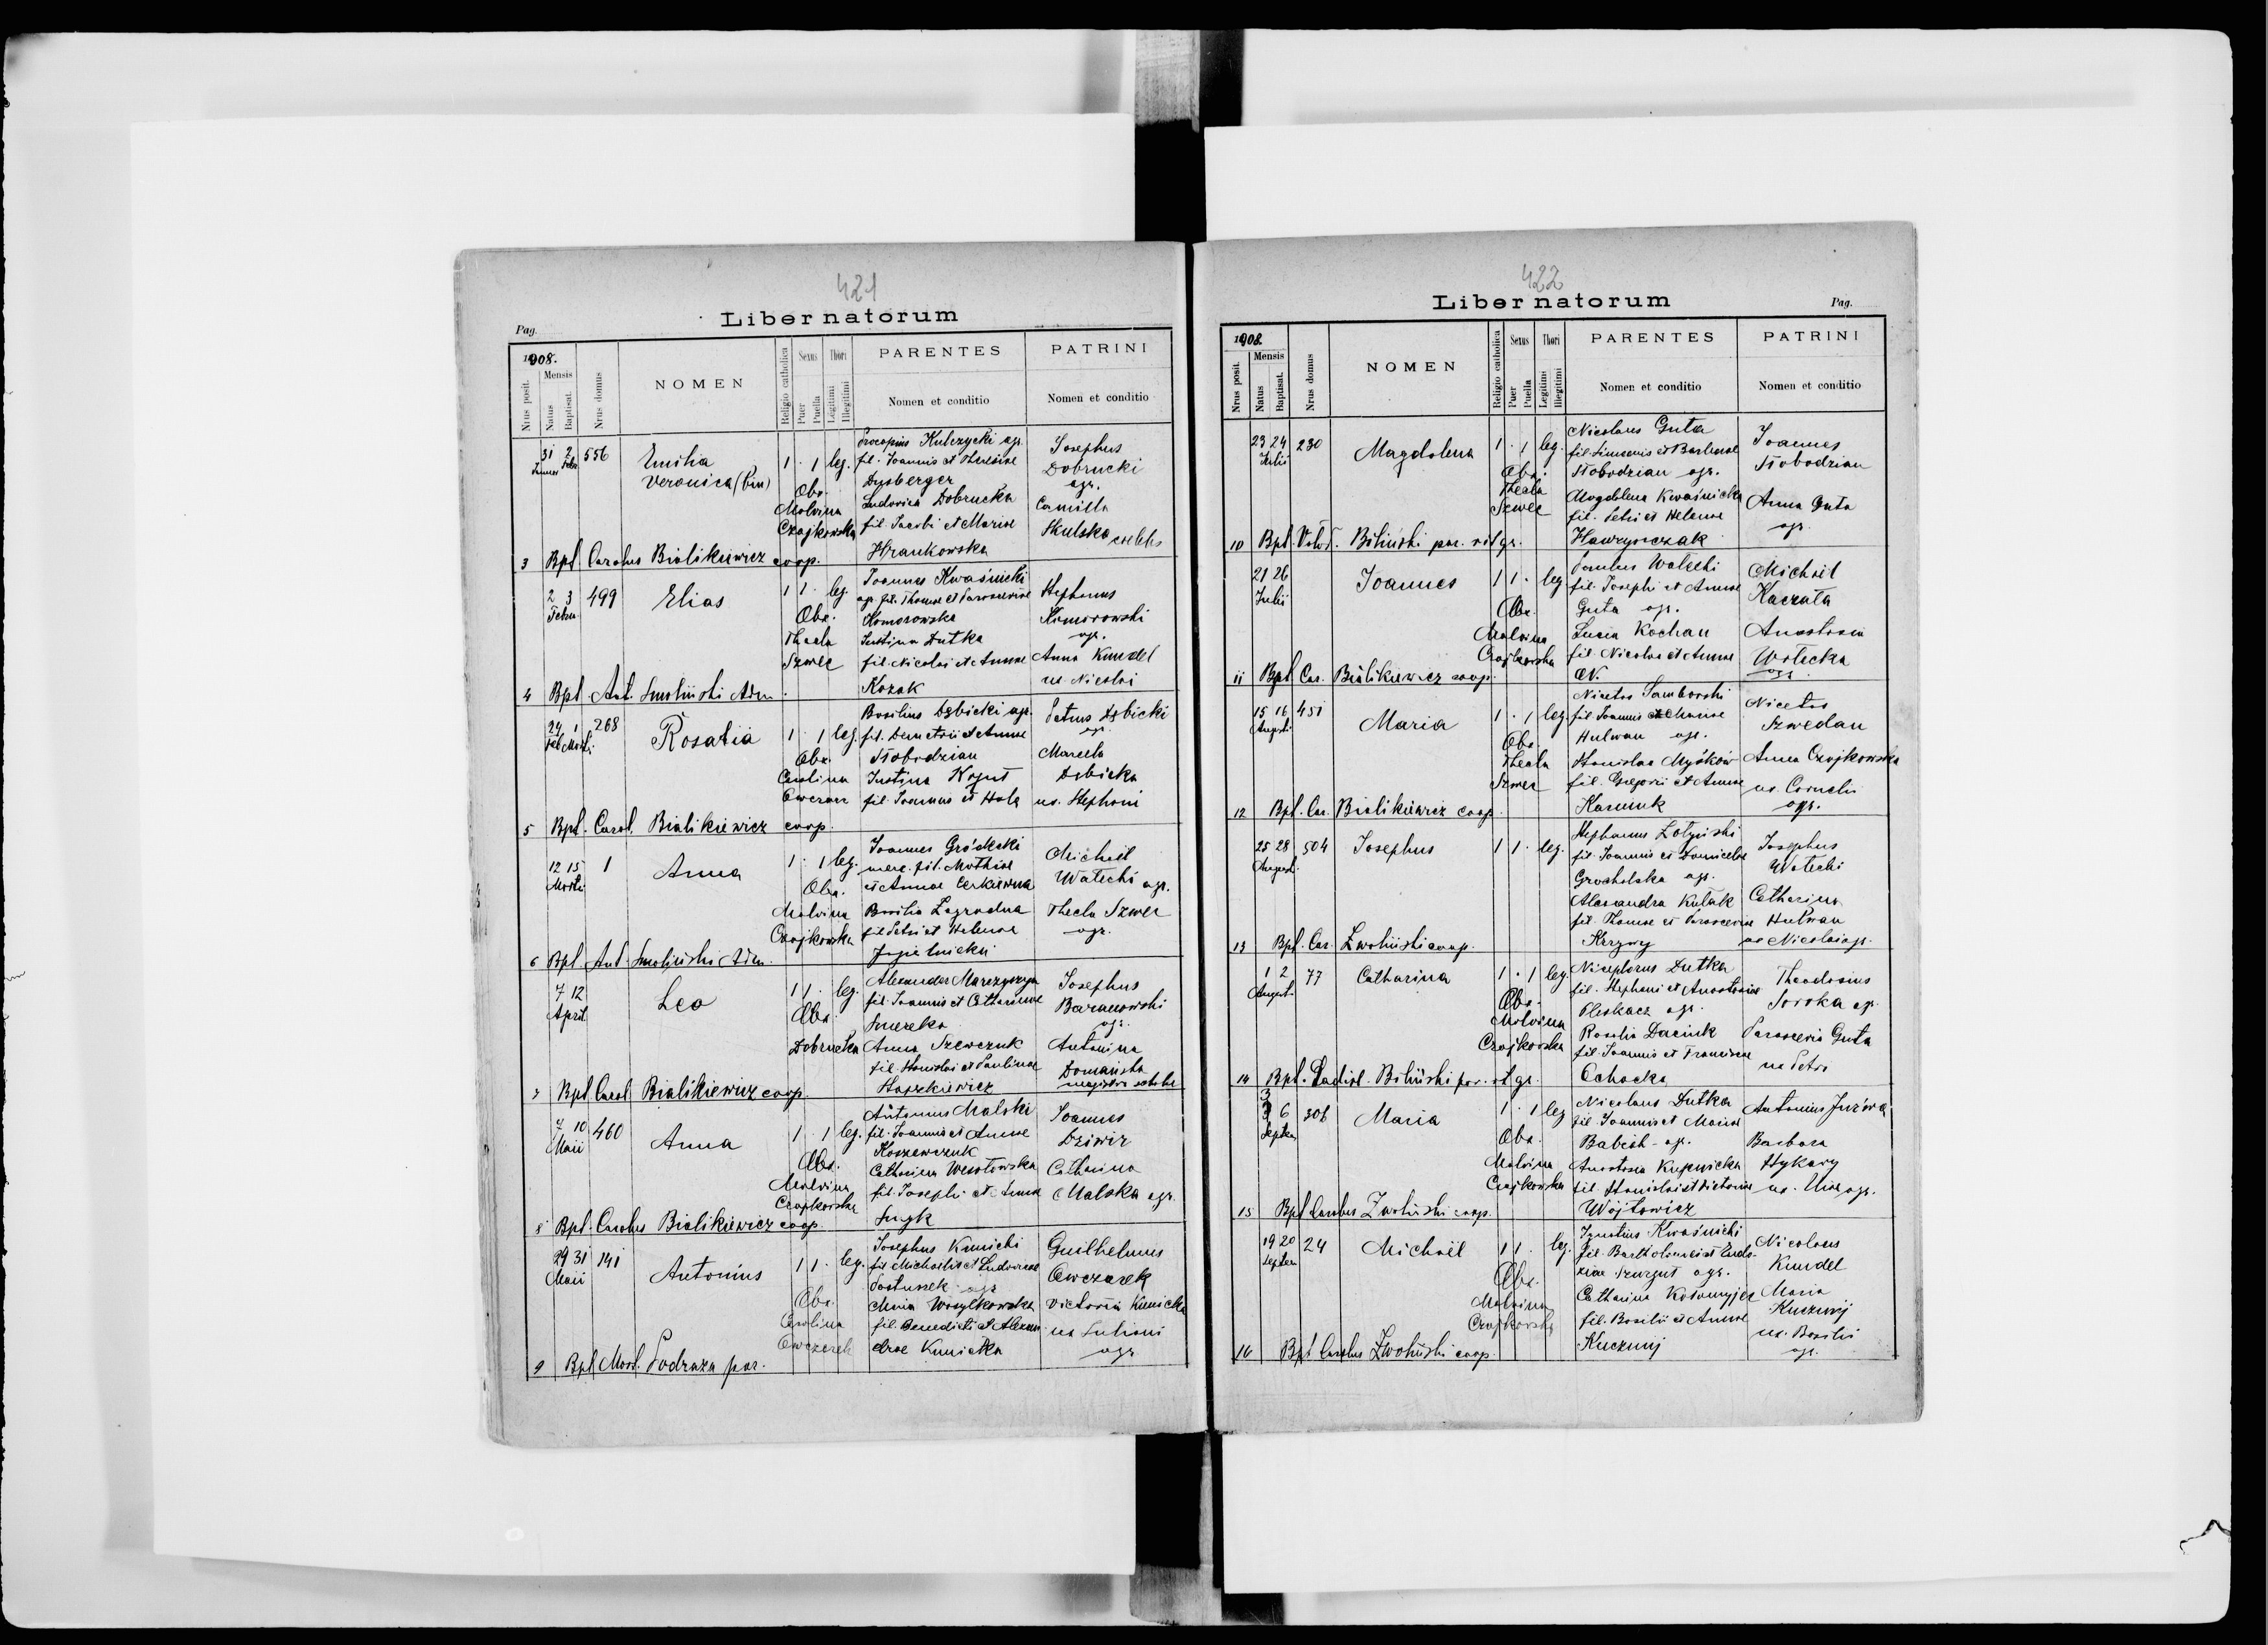 421
Liber natorum
Pag.
1908.
Nrus posit.
Mensis
Natus
Baptisat.
Nrus domus
NOMEN
Religio catholica
Sexus
Puer
Puella
Thori
Legitimi
Illegitimi
PARENTES
Nomen et conditio
PATRINI
Nomen et conditio
31 2 556
Emilia
Veronica (bin)
1 . 1 leg.
Obs.
Malvina
Czajkowska
Procopius Kulczycki agr.
fil. Joannis et Theresiae
Dysberger
Ludovica Dobrucka
fil. Jacobi et Mariae
Hrankowska
Josephus
Dobrucki
agr.
Camilla
Skulska caelebs
3 Bpt. Carolus Bialikiewicz coop.
2 3 499
Febru.
Elias
1 1 . leg.
Obs.
Thecla
Szwec
Joannes Kwaśnicki
agr. fil. Thomae et Parasceviae
Komorowska
Justina Dutka
fil. Nicolai et Annae
Kozak
Stephanus
Komorowski
agr.
Anna Kindel
ux. Nicolai
4 Bpt. Ant. Smoliński Adm.
29 1 268
Feb. Marti.
Rosalia
1 . 1 leg.
Obs.
Carolina
Owczarz
Basilius Dębicki agr.
fil. Demetrii et Annae
Słobodzian
Justina Kogut
fil. Joannis et Hala
Petrus Dębicki
agr.
Marcella
Dębicka
ux. Stephani
5 Bpt. Carol. Bialikiewicz coop.
12 15 1
Marti.
Anna
1 . 1 leg.
Obs.
Malvina
Czajkowska
Joannes Gródecki
merc. fil. Mathiae
et Annae Cerkiewna
Basilia Zagrodna
fil. Petri et Helenae
Jagielnicki
Michael
Watecki agr.
Thecla Szwec
agr.
6 Bpt. Ant. Smoliński Adm.
7 12
April.
Leo
1 1 . leg.
Obs.
Dobrucka
Alexander Marczyszyn
fil. Joannis et Catharinae
Smereka
Anna Szewczuk
fil. Stanislai et Paulinae
Haszkiewicz
Josephus
Baranowski
agr.
Antonina
Domańska
magistra scholae
7 Bpt. Carol. Bialikiewicz coop.
7 10 460
Maii
Anna
1 . 1 leg.
Obs.
Malvina
Czajkowska
Antonius Malski
fil. Joannis et Annae
Koszewczuk
Catharina Wesołowska
fil. Josephi et Annae
Smyk
Joannes
Dziwir
Catharina
Malska agr.
8 Bpt. Carolus Bialikiewicz coop.
29 31 141
Maii
Antonius
1 1 . leg.
Obs.
Carolina
Owczarek
Josephus Kunicki
fil. Michaelis et Ludovicae
Pastuszek agr.
Maria Wasylkowska
fil. Benedicti et Alexan
drae Kunicka
Guilhelmus
Owczarek
Victoria Kunicka
ux. Juliani
agr.
9 Bpt. Mart. Podraza par.
422
Liber natorum
Pag.
1908.
Nrus posit.
Mensis
Natus
Baptisat.
Nrus domus
NOMEN
Religio catholica
Sexus
Puer
Puella
Thori
Legitimi
Illegitimi
PARENTES
Nomen et conditio
PATRINI
Nomen et conditio
23 24 230
Julii
Magdalena
1 . 1 leg.
Obs.
Thecla
Szwec
Nicolaus Guta
fil. Simeonis et Barbarae
Słobodzian agr.
Magdalena Kwaśnicka
fil. Petri et Helenae
Hawryszczak
Joannes
Słobodzian
Anna Guta
agr.
10 Bpt. Vlad. Biliński par. rit. gr.
21 26
Julii
Joannes
1 1 . leg.
Obs.
Malvina
Czajkowska
Paulus Watecki
fil. Josephi et Annae
Guta agr.
Lucia Kochan
fil. Nicolai et Annae
N.
Michael
Kaczała
Anastasia
Watecka
agr.
11 Bpt. Car. Bialikiewicz coop.
15 16 451
Augusti
Maria
1 . 1 leg.
Obs.
Thecla
Szwec
Nicetas Samborski
fil. Joannis et Mariae
Hulwan agr.
Stanislaa Myśków
fil. Gregorii et Annae
Karmuk
Nicetas
Szwedan
Anna Czajkowska
ux. Cornelii
agr.
12 Bpt. Car. Bialikiewicz coop.
25 28 504
August.
Josephus
1 1 . leg.
Stephanus Zotyński
fil. Joannis et Domicelae
Grocholska agr.
Alexandra Kułak
fil. Thomae et Parasceviae
Krzywy
Josephus
Watecki
Catharina
Hulwan
ux. Nicolai agr.
13 Bpt. Car. Zwoliński coop.
1 2 77
August.
Catharina
1 . 1 leg.
Obs.
Malvina
Czajkowska
Nicephorus Dutka
fil. Stephani et Anastasiae
Pleskacz agr.
Rosalia Daciuk
fil. Joannis et Franciscae
Ochocka
Theodosius
Soroka agr.
Parascevia Guta
ux. Petri
14 Bpt. Ladisl. Biliński par. rit. gr.
3 6 306
Septem.
Maria
1 . 1 leg.
Obs.
Malvina
Czajkowska
Nicolaus Dutka
fil. Joannis et Mariae
Babesh - agr.
Anastasia Krupnicka
fil. Stanislai et Victoriae
Wójtowicz
Antonius Jurówa
Barbara
Hykawy
ux. Uiae agr.
15 Bpt. Carolus Zwoliński coop.
19 20 24
Septem.
Michaël
1 1 . leg.
Obs.
Malvina
Czajkowska
Ignatius Kwaśnicki
fil. Bartholomei et Eudo-
xiae Szurgut agr.
Catharina Kołomyjec
fil. Basilii et Annae
Kuczmij
Nicolaus
Kindel
Maria
Kuczmij
ux. Basilii
agr.
16 Bpt. Carolus Zwoliński coop.